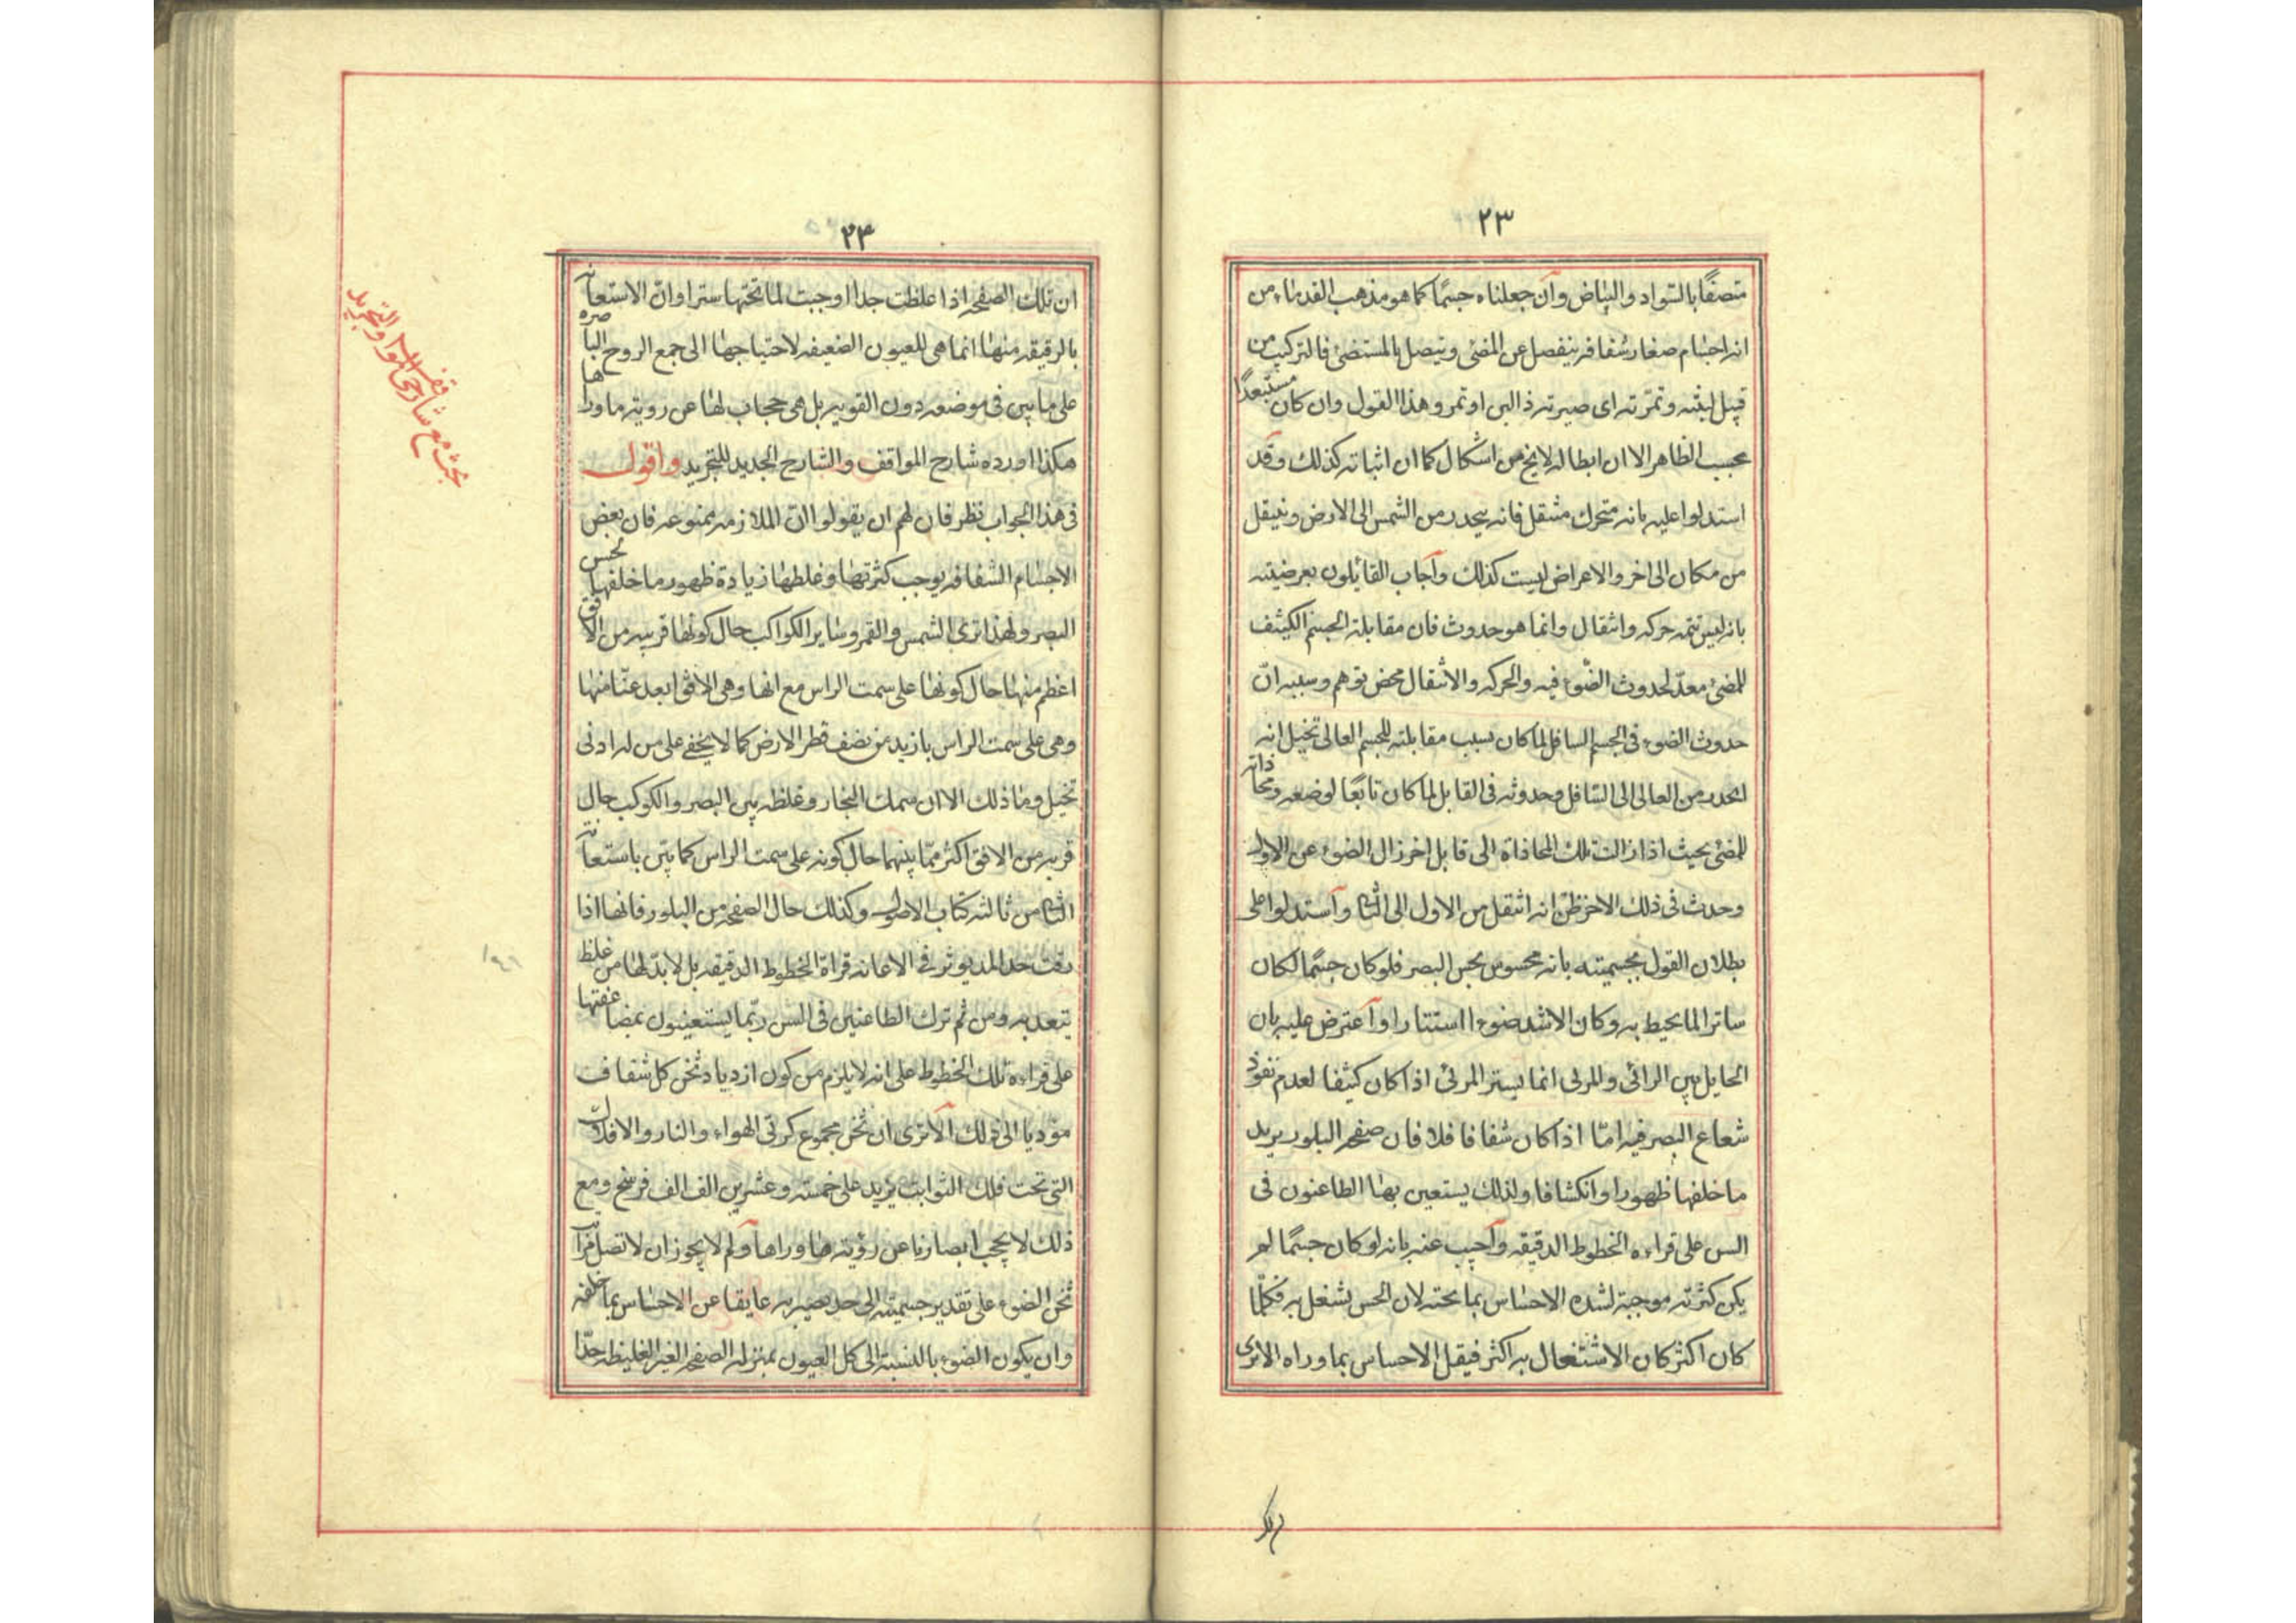 ٢٣
متصفًا بالسّواد والبیاض وآن جعلناه جسمًا كما هو مذهب القدماء من
انه اجسام صغار شفافه ینفصل عن المضئ ویتصل بالمستضئ فالتركیب من
قبیل لبنته وتمّرته ای صیرته ذا لبن او تمر وهذا القول وان كان مستبعدًا
بحسب الظاهر الا ان ابطاله لا یخ من اشكال كما ان اثباته كذلك وقد
استدلوا علیه بانه متحرك منتقل فانه ینحدر من الشمس الی الارض وینتقل
من مكان الی اخر والاعراض لیست كذلك وآجاب القائلون بعرضیته
بانه لیس ثمه حركه وانتقال وانما هو حدوث فان مقابلة الجسم الكثیف
للمضئ معدّ لحدوث الضّوء فیه والحركه والانتقال محض توهم وسببه انّ
حدوث الضوء فی الجسم السافل لما كان بسبب مقابلته للجسم العالی تخیل انه
انحدر من العالی الی السّافل وحدوثه فی القابل لما كان تابعًا لوضعه ومحاذاته
للمضئ بحیث اذا زالت تلك المحاذاة الی قابل اخر زال الضوء عن الاول
وحدث فی ذلك الاخر ظنّ انه انتقل من الاول الی الثانی وآستدلوا علی
بطلان القول بجسمیته بانه محسوس بحس البصر فلو كان جسمًا لكان
ساترا لما یحیط به وكان الاشد ضوءا استتارا وآعترض علیه بان
الحایل بین الرائی والمرئی انما یستر المرئی اذا كان كثیفا لعدم نفوذ
شعاع البصر فیه امّا اذا كان شفافا فلا فان صفحه البلور یرید
ما خلفها ظهورا وانكشافا ولذلك یستعین بها الطاعنون فی
السن علی قراءه الخطوط الدقیقه وآجیب عنه بانه لو كان جسمًا لم
یكن كثرته موجبة لشده الاحساس بما تحته لان الحس یشغل به فكلّما
كان اكثر كان الاشتغال به اكثر فیقل الاحساس بما وراه الا تری
ان تلك
٢٤
ان تلك الصفحه اذا غلظت جدا اوجبت لما تحتها سترا وانّ الاستعانه
بالرقیقه منها انما هی للعیون الضعیفه لاحتیاجها الی جمع الروح الباصره
علی ما بین فی موضعه دون القویه بل هی حجاب لها عن رویة ما وراها
هكذا اورده شارح المواقف والشارح الجدید للتجرید واقول
فی هذا الجواب نظر فان لهم ان یقولوا انّ الملازمه ممنوعه فان بعض
الاجسام الشفافه یوجب كثرتها وغلظها زیادة ظهور ما خلفها لحس
البصر ولهذا تری الشمس والقمر وسایر الكواكب حال كونها قریبه من الافق
اعظم منها حال كونها علی سمت الراس مع انها وهی الافق ابعد عنّا منها
وهی علی سمت الراس بازید من نصف قطر الارض كما لا یخفی علی من له ادنی
تخیل وما ذلك الا ان سمك البخار وغلظه بین البصر والكوكب حال
قربه من الافق اكثر ممّا بینهما حال كونه علی سمت الراس كما بیّن باستعانة
الثامن من ثالثة كتاب الاصول وكذلك حال الصفحه من البلور فانها اذا
رقت جدا لم یوثر فی الاعانه قراة الخطوط الدقیقه بل لا بدّ لها من غلظ
یتعد به ومن ثم تری الطاعنین فی السن ربّما یستعینون بمضاعفتها
علی قراءه تلك الخطوط علی انه لا یلزم من كون ازدیاد ثخن كل شفاف
مؤدیا الی ذلك آلا تری ان ثخن مجموع كرتی الهواء والنار والافلاك
التی تحت فلك الثوابت یزید علی خمسة وعشرین الف الف فرسخ ومع
ذلك لا یحجب ابصارنا عن رؤیة ما وراها ولم لا یجوز ان لا تصل مراتب
ثخن الضوء علی تقدیر جسمیته الی حد یصیر به عایقا عن الاحساس بما خلفه
وان یكون الضوء بالنسبة الی كل العیون بمنزله الصفحه الغیر الغلیظه جدّا
بحث مع شارحی المواقف والتجرید